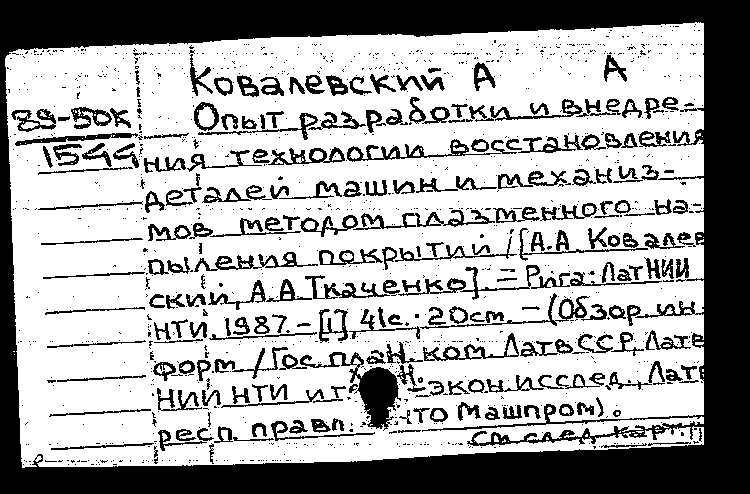 Ковалевский А А
89-50К Опыт разработки и внедре-
1544 ния технологии восстановления
деталей машин и механиз-
мов методом плазменного на-
пыления покрытий /[А.А. Ковалев
ский, А.А. Ткаченко]. = Рига: ЛатНИИ
НТИ, 1987. - [1], 41с.; 20см. - (Обзор. ин
форм / Гос. план. ком. ЛатвССР, Латв
НИИ НТИ и т -экон. исслед., Латв
респ. правл. НТО Машпром).
См след карт.